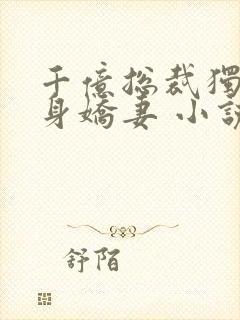 千億总裁獨
身嬌妻 小説
舒陌